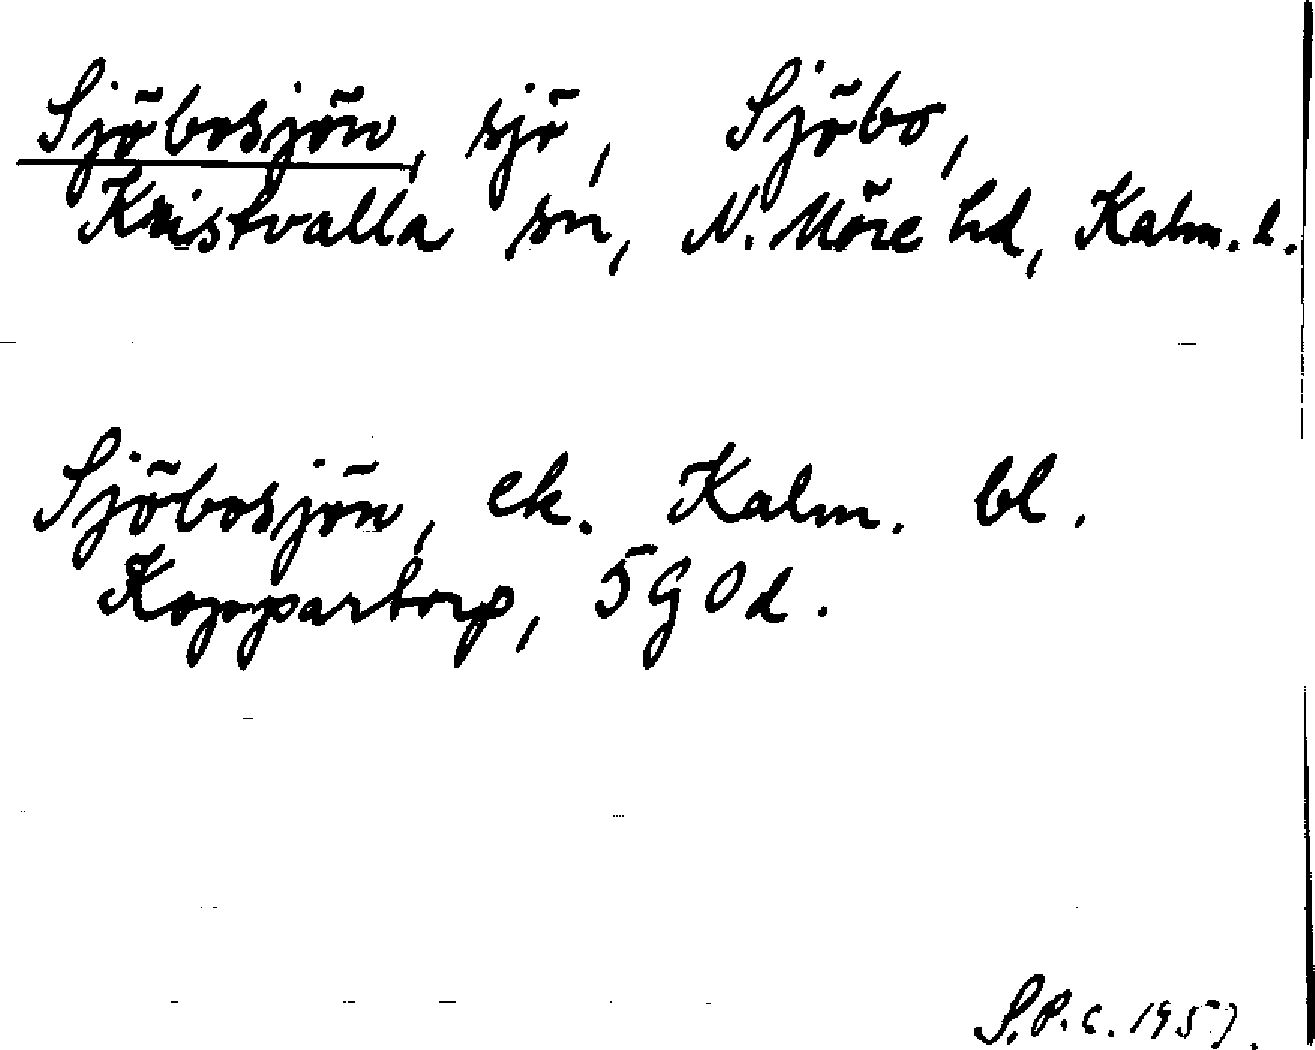 Sjöbosjön, sjö, Sjöbo,
Kristvalla sn, N. Möre hd, Kalm. l.
Sjöbosjön, ek. Kalm. bl.
Koppartorp, 5G0d.
S.P.C. 1957.